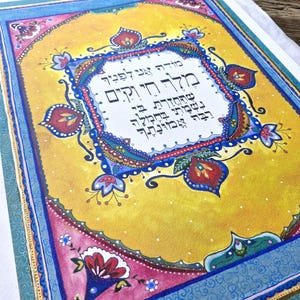 מודה אני לפניך
מלך חי וקים
שהחזרת בי
נשמתי בחמלה
רבה אמונתך